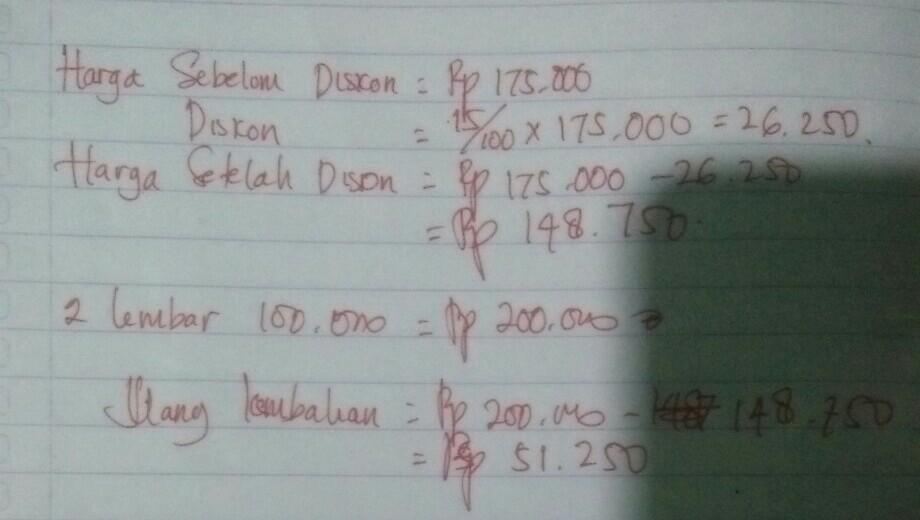 Harga Sebelom Diskon = Rp 175.000
Diskon = 15/100 x 175.000 = 26.250.
Harga Setelah Dison = Rp 175.000 - 26.250
= Rp 148.750.
2 lembar 100.000 = Rp 200.000
Uang kembalian = Rp 200.000 - 148.750
= Rp 51.250